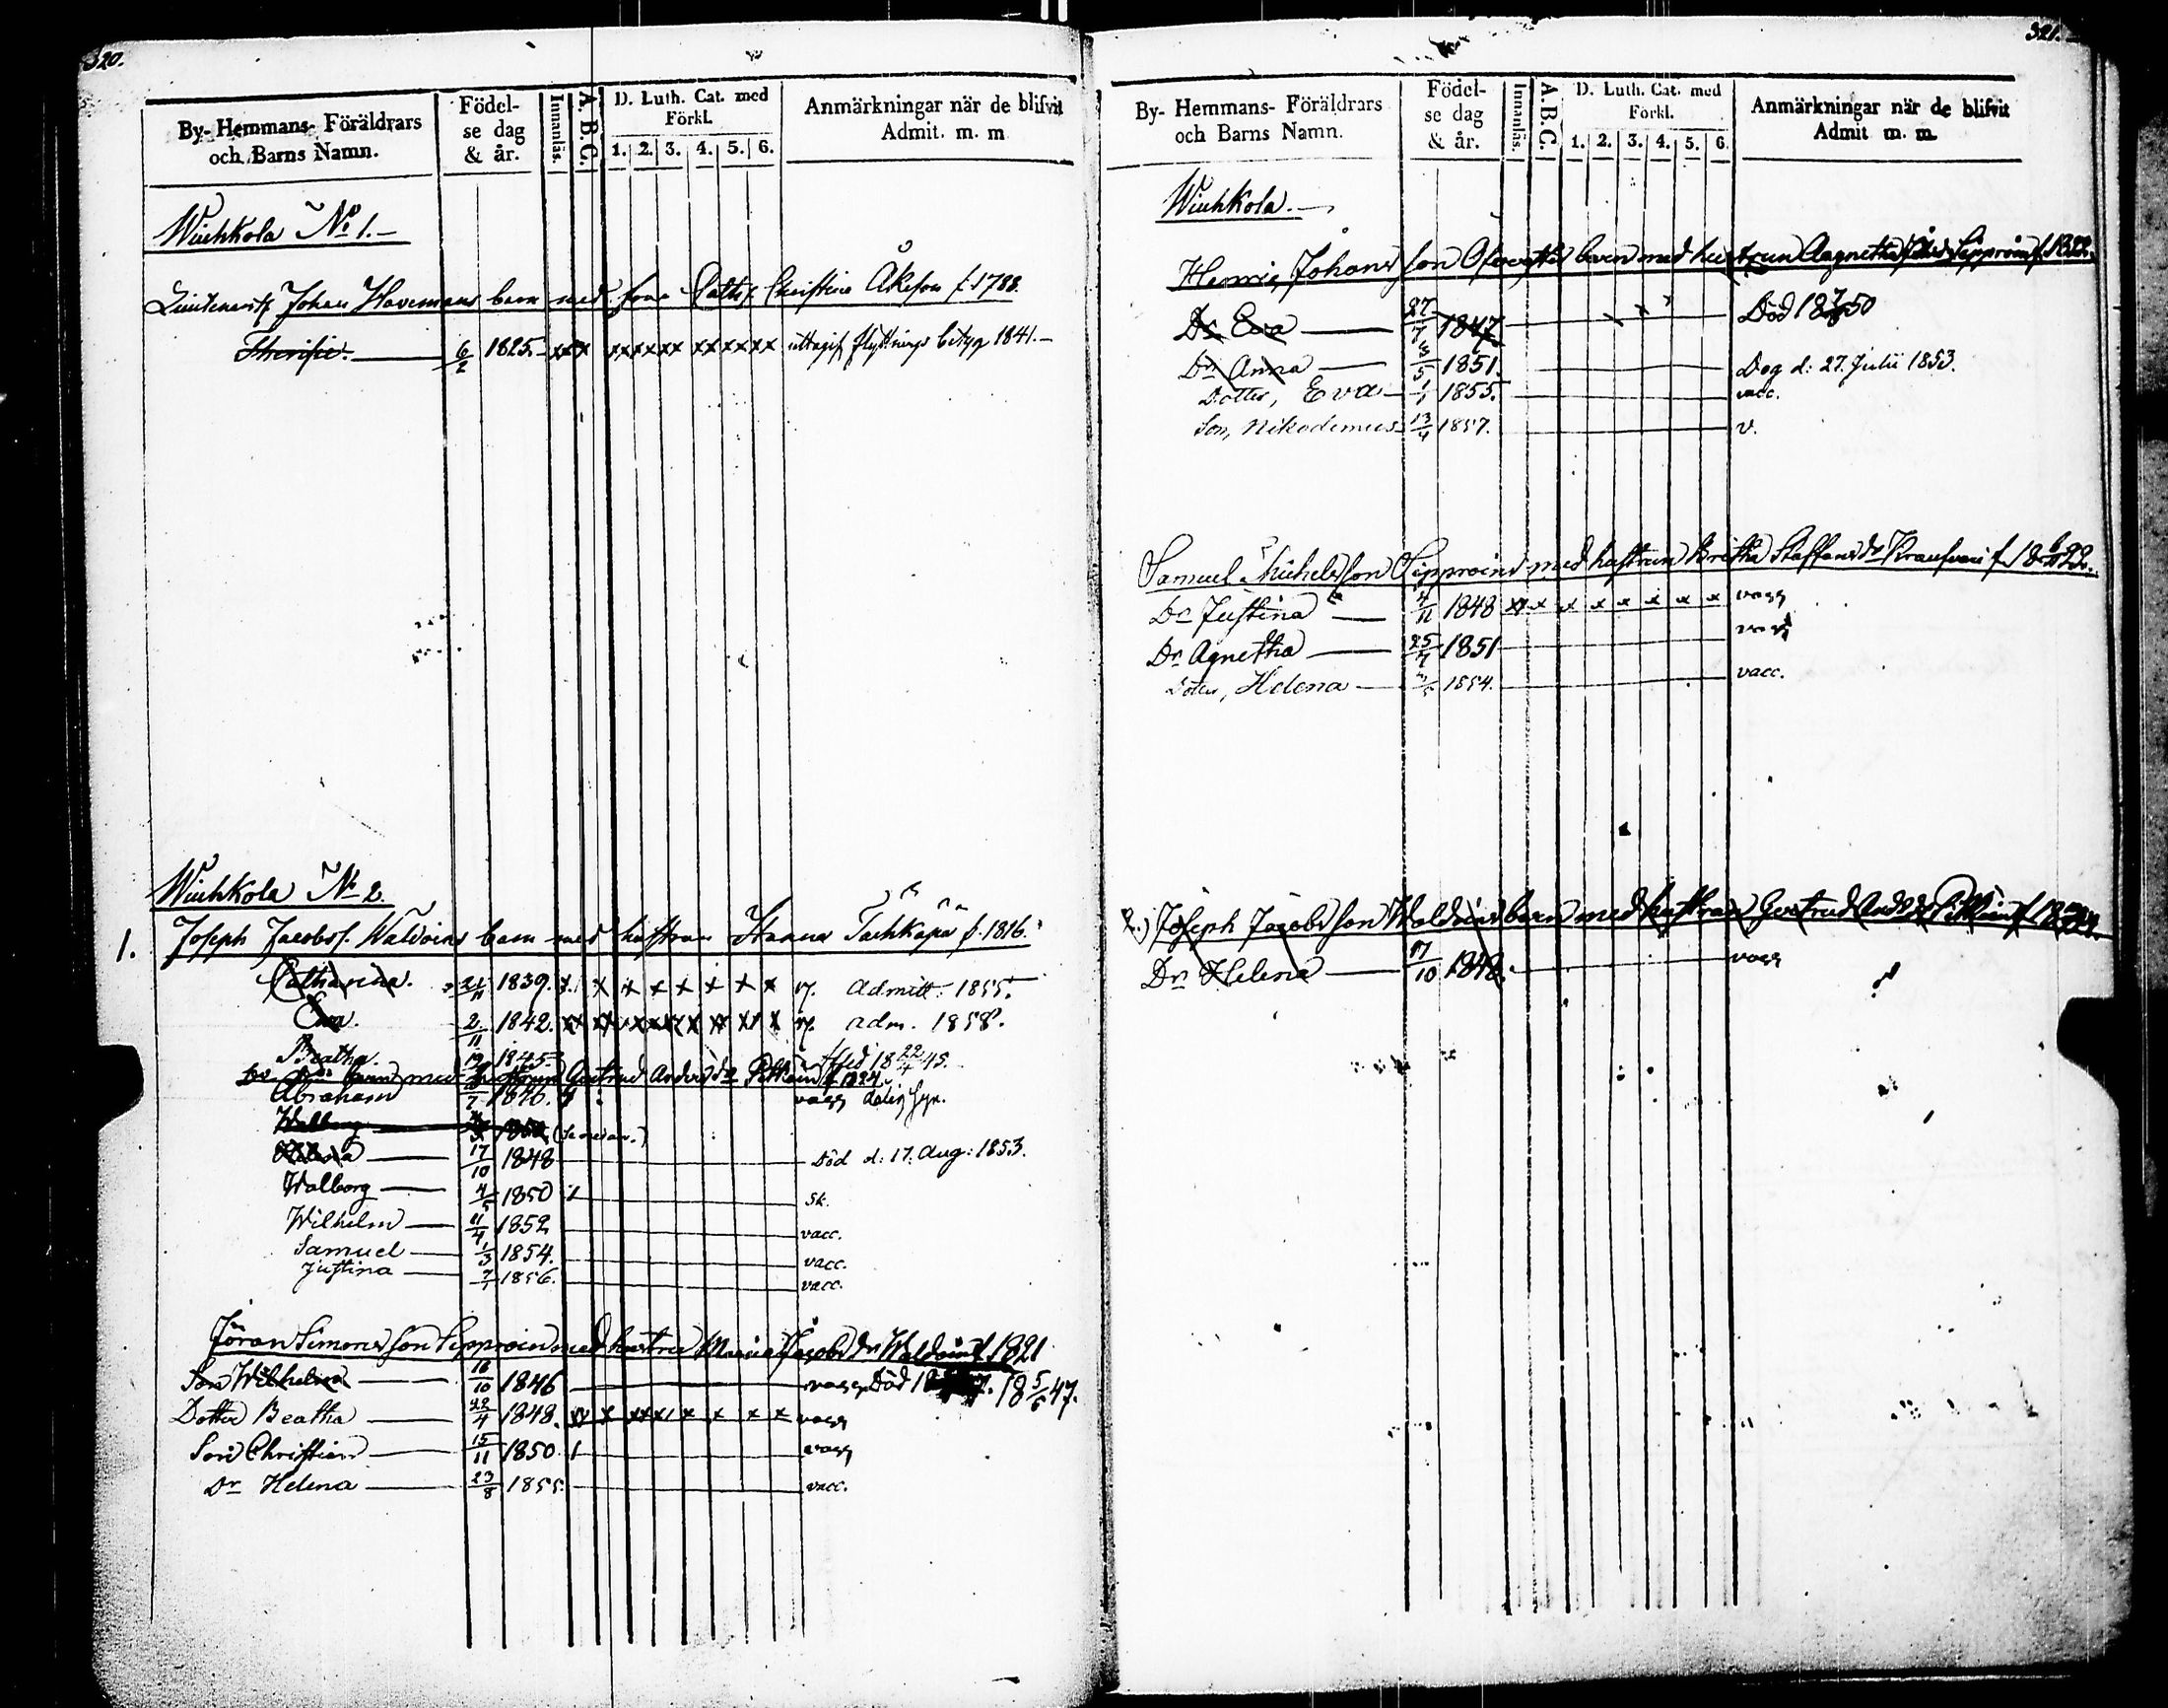 320.
By- Hemmans- Föräldrars och Barns Namn.
Födel-se dag & år.
Innanläs.
A.B.C.
D. Luth. Cat. med Förkl.
1. 2. 3. 4. 5. 6.
Anmärkningar när de blifvit Admit. m. m
Wiuhkola No 1.
Johan Havemans barn med fru Cath. Christina Åkeson f. 1788.
6/2 1825. xxx xxxxxx xxxxxx flyttnings betyg 1841.
Wiuhkola No 2.
1. Joseph Jacobss. Waldoins barn med hustrun Hanna f. 1816.
Catharina. 21/11 1839. x. x x x x x x x v. Admitt. 1855.
Eva. 2/11 1842. v. adm. 1858.
Beatha 19 1845 18 22/4 45.
barn med hustrun Gertrud Anders dr f. 1824.
Abraham /7 1846. vacc
Walborg
Helena 17/10 1848 Död d: 17. Aug: 1853.
Walborg 4/5 1850 sk.
Wilhelm 11/4 1852 vacc.
Samuel 1/3 1854. vacc.
Justina 7/1 1856. vacc.
Jöran Simons son Sipproin med hustru Maria Jacobs dr Waldoin f 1821
Son Wilhelm 16/10 1846 vacc Död 18 5/6 47.
Dotter Beatha 22/4 1848. xx x xxx x x x x vacc
Son Christian 15/11 1850. vacc
Dr Helena 23/8 1855. vacc.
321.
By- Hemmans- Föräldrars och Barns Namn.
Födel-se dag & år.
Innanläs.
A.B.C.
D. Luth. Cat. med Förkl.
1. 2. 3. 4. 5. 6.
Anmärkningar när de blifvit Admit. m. m.
Wiuhkola.
Johans son barn med hustrun Agnetha Sipproin f. 1822.
Dr Eva 27/7 1847 Död 50
Dr Anna /5 1851. Dog d: 27. Julii 1853.
Dotter, Eva 1/1 1855. vacc.
Son, Nikodemus 13/4 1857. v.
Samuel Michels son Sipproins med hustrun Britha Staffans dr
Dr Justina 4/11 1848 x x x x x x x x vacc
Dr Agnetha 25/4 1851 vacc
Dotter, Helena 1854. vacc.
2.) Joseph Jacobs son Waldoins barn med hustrun Gertrud Anders dr
Dr Helena 17/10 1848. vacc